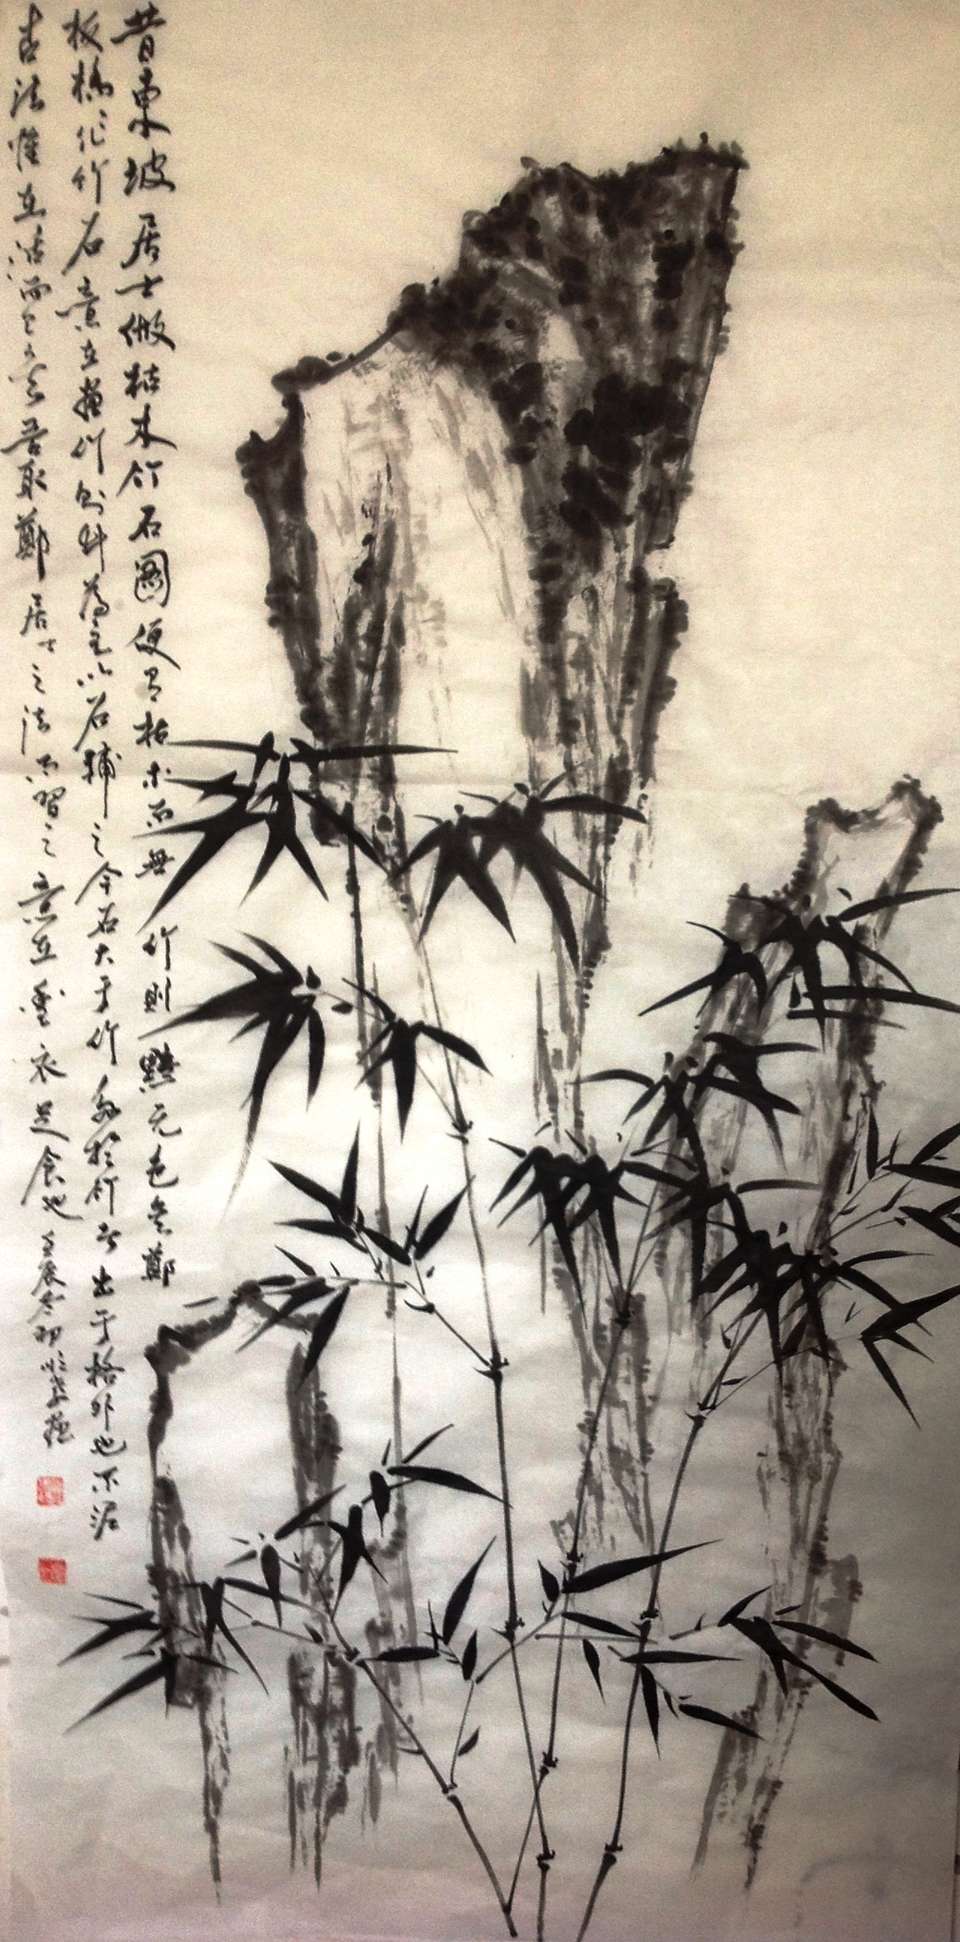 昔東坡居士做枯木竹石圖使有枯木而無竹則黯无色矣鄭
板橋作竹石意在畫竹則竹為主以石輔之今石大于竹多於竹者出于格外也不泥
古法惟在活而已矣吾取鄭居士之法而習之意在豐衣足食也壬辰冬初